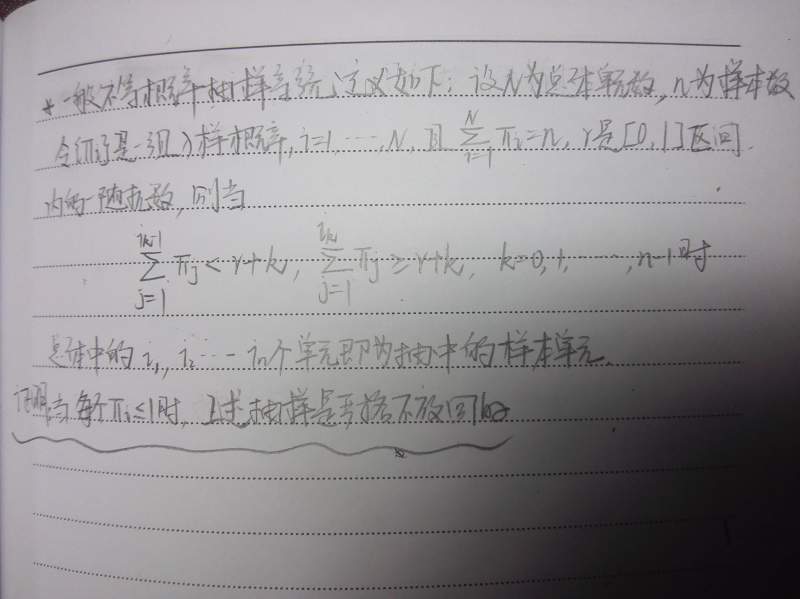 *一般不等概率抽样系统定义如下:设N为总体单元数,n为样本数
令{πi}是一组入样概率,i=1,…,N,且 \sum_{i=1}^{N} πi=n, r是[0,1]区间
内的一随机数,则当
\sum_{j=1}^{ik-1} πj<r+k, \sum_{j=1}^{ik} πj≥r+k, k=0,1,……,n-1时
总体中的i1,i2…in个单元即为抽中的样本单元.
证明:当每个πi≤1时,上述抽样是严格不放回的